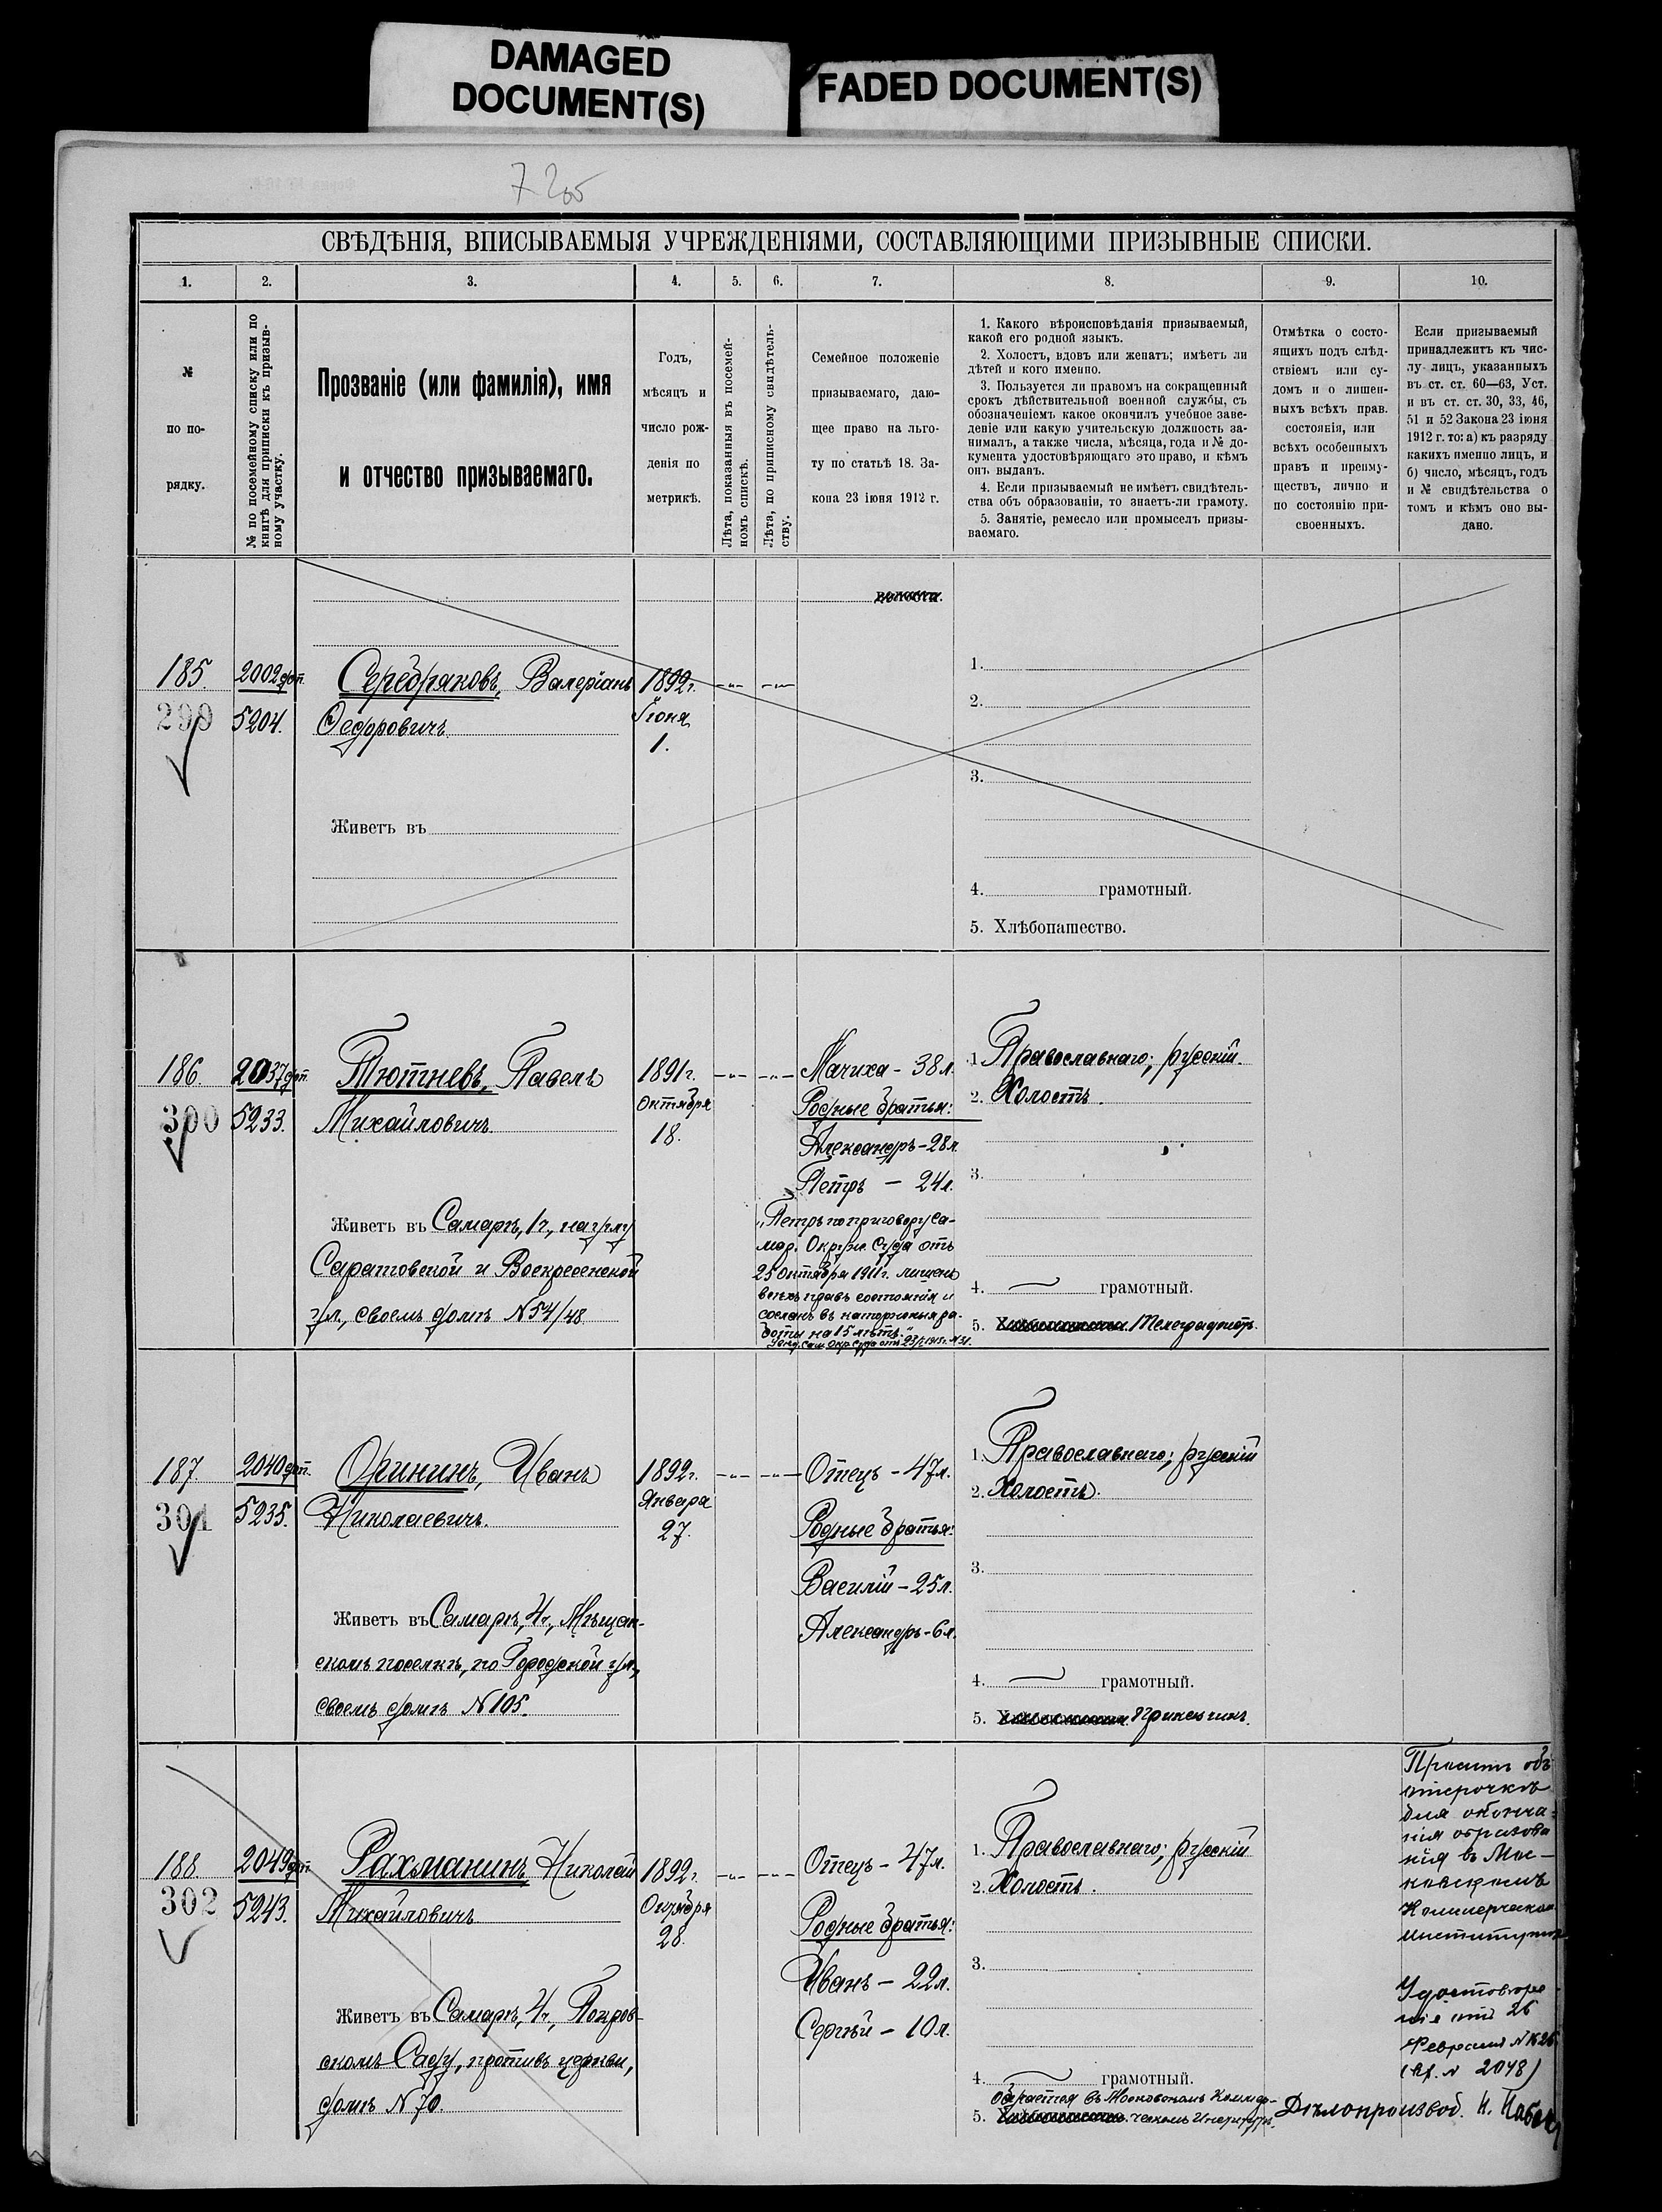 DAMAGED
DOCUMENT(S)
FADED DOCUMENT(S)
СВѢДѢНІЯ, ВПИСЫВАЕМЫЯ УЧРЕЖДЕНІЯМИ, СОСТАВЛЯЮЩИМИ ПРИЗЫВНЫЕ СПИСКИ.
1. 2. 3. 4. 5. 6. 7. 8. 9. 10.
№
по по-
рядку.
№ по посемейному списку или по
книгѣ для приписки къ призыв-
ному участку.
Прозваніе (или фамилія), имя
и отчество призываемаго.
Годъ,
мѣсяцъ и
число рож-
денія по
метрикѣ.
Лѣта, показанныя въ посемей-
номъ спискѣ.
Лѣта, по приписному свидѣтель-
ству.
Семейное положеніе
призываемаго, даю-
щее право на льго-
ту по статьѣ 18. За-
кона 23 іюня 1912 г.
1. Какого вѣроисповѣданія призываемый,
какой его родной языкъ.
2. Холостъ, вдовъ или женатъ; имѣетъ ли
дѣтей и кого именно.
3. Пользуется ли правомъ на сокращенный
срокъ дѣйствительной военной службы, съ
обозначеніемъ какое окончилъ учебное заве-
деніе или какую учительскую должность за-
нималъ, а также числа, мѣсяца, года и № до-
кумента удостовѣряющаго это право, и кѣмъ
онъ выданъ.
4. Если призываемый не имѣетъ свидѣтель-
ства объ образованіи, то знаетъ-ли грамоту.
5. Занятіе, ремесло или промыселъ призы-
ваемаго.
Отмѣтка о состо-
ящихъ подъ слѣд-
ствіемъ или су-
домъ и о лишен-
ныхъ всѣхъ прав.
состоянія, или
всѣхъ особенныхъ
правъ и преиму-
ществъ, лично и
по состоянію при-
своенныхъ.
Если призываемый
принадлежитъ къ чис-
лу лицъ, указанныхъ
въ ст. ст. 60—63, Уст.
и въ ст. ст. 30, 33, 46,
51 и 52 Закона 23 іюня
1912 г. то: а) къ разряду
какихъ именно лицъ, и
б) число, мѣсяцъ, годъ
и № свидѣтельства о
томъ и кѣмъ оно вы-
дано.
волости.
185.
299
2002 доп.
5204.
Серебряковъ, Валеріанъ
Ѳедоровичъ
Живетъ въ
1892 г.
Іюня
1.
1.
2.
3.
4. грамотный.
5. Хлѣбопашество.
186.
300
2037 доп.
5233.
Тютневъ, Павелъ
Михайловичъ
Живетъ въ Самарѣ, 1 ч., на углу
Саратовской и Воскресенской
ул., своемъ домѣ N 54/48
1891 г.
Октября
18.
Мачиха - 38 л.
Родные братья:
Александръ - 28 л.
Петръ — 24 л.
„Петръ по приговору Са-
мар. Окруж. Суда отъ
25 октября 1911 г. лишенъ
всѣхъ правъ состоянія и
сосланъ въ каторжныя ра-
боты на 15 лѣтъ."
1. Православнаго; русскій
2. Холостъ.
3.
4. грамотный.
5. Телеграфистъ.
187.
301
2040 доп.
5235.
Орининъ, Иванъ
Николаевичъ.
Живетъ въ Самарѣ, 4 ч., Мѣщан-
скомъ поселкѣ, по Городской ул.,
своемъ домѣ N 105.
1892 г.
Января
27.
Отецъ - 47 л.
Родные братья:
Василій - 25 л.
Александръ - 6 л.
1. Православнаго; русскій
2. Холостъ.
3.
4. грамотный.
5. Прикащикъ.
188.
302
2049 доп.
5243.
Рахманинъ Николай
Михайловичъ
Живетъ въ Самарѣ, 4 ч., Покров-
скомъ Саду, противъ церкви,
домъ N 70.
1892 г.
Октября
28.
Отецъ - 47 л.
Родные братья:
Иванъ — 22 л.
Сергѣй - 10 л.
1. Православнаго; русскій
2. Холостъ.
3.
4. грамотный.
Обучается въ Московскомъ Коммер-
5. ческомъ Институтѣ.
Проситъ объ
отсрочкѣ
для оконча-
нія образова
нія въ Мос-
ковскомъ
Коммерческом
институтѣ
Удостовѣре
ніе отъ 26
Февраля
Дѣлопроизвод. Н.